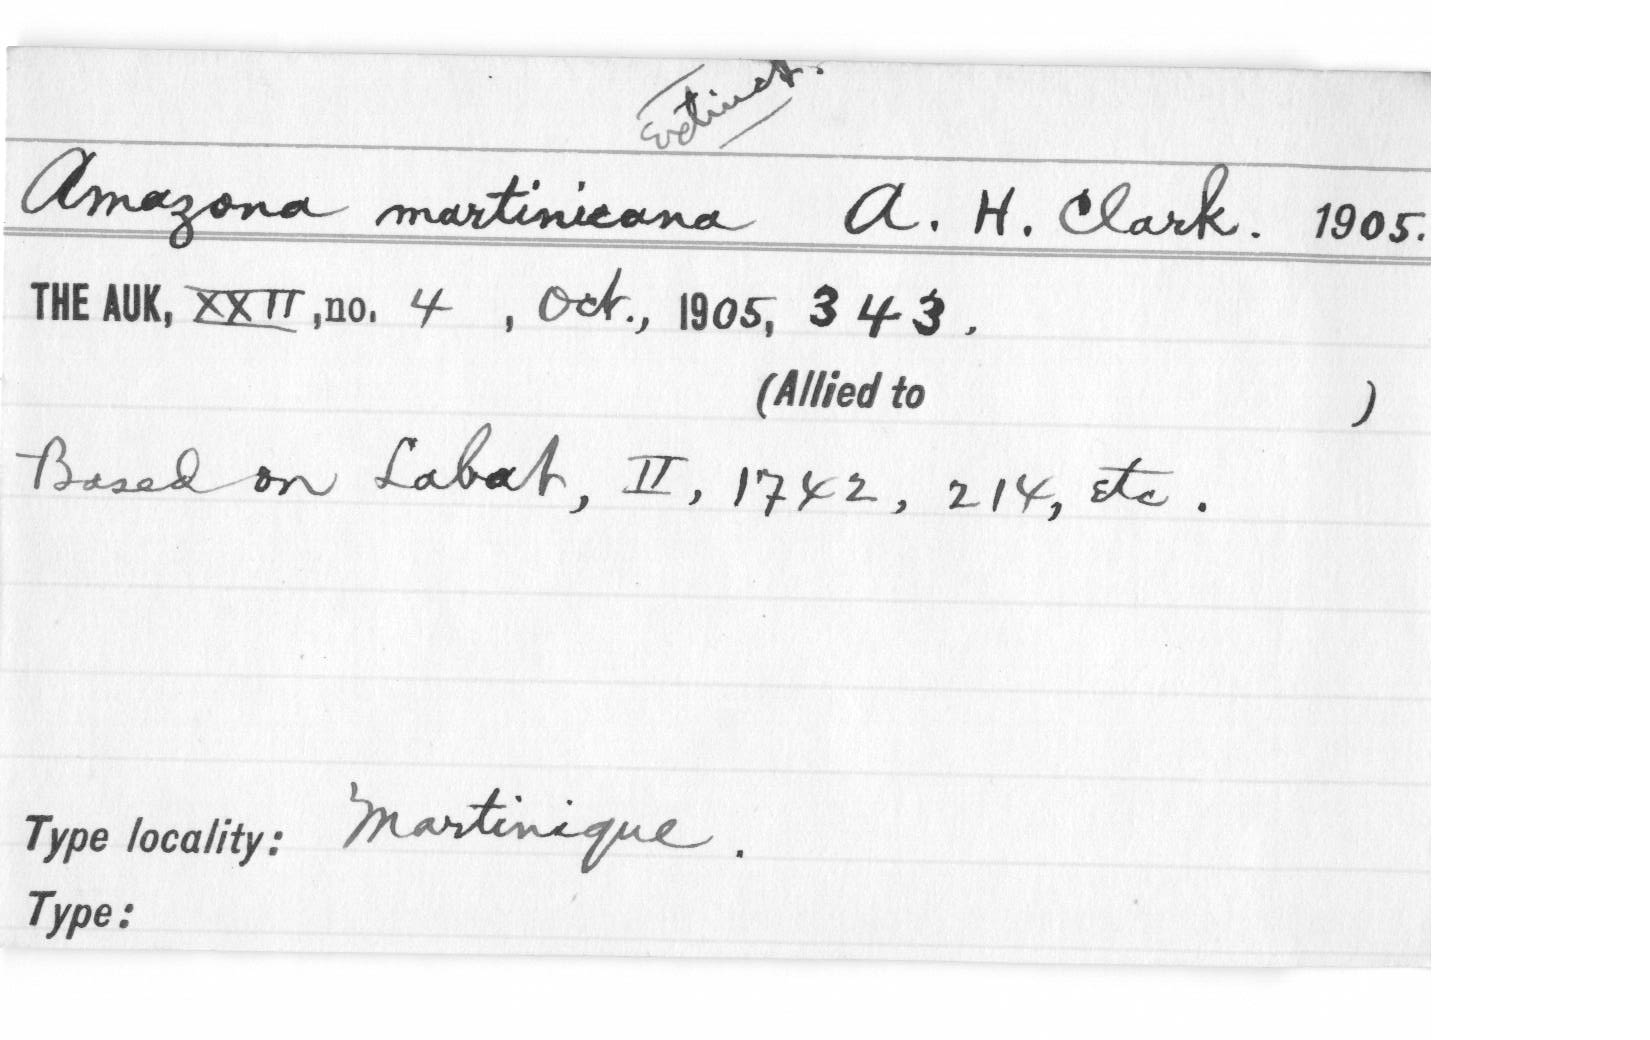 Extinct.
Amazona martinicana A. H. Clark. 1905.
THE AUK, XXII, no. 4, Oct., 1905, 343.
(Allied to )
Based on Labat, II, 1742, 214, etc.
Type locality: Martinique.
Type: